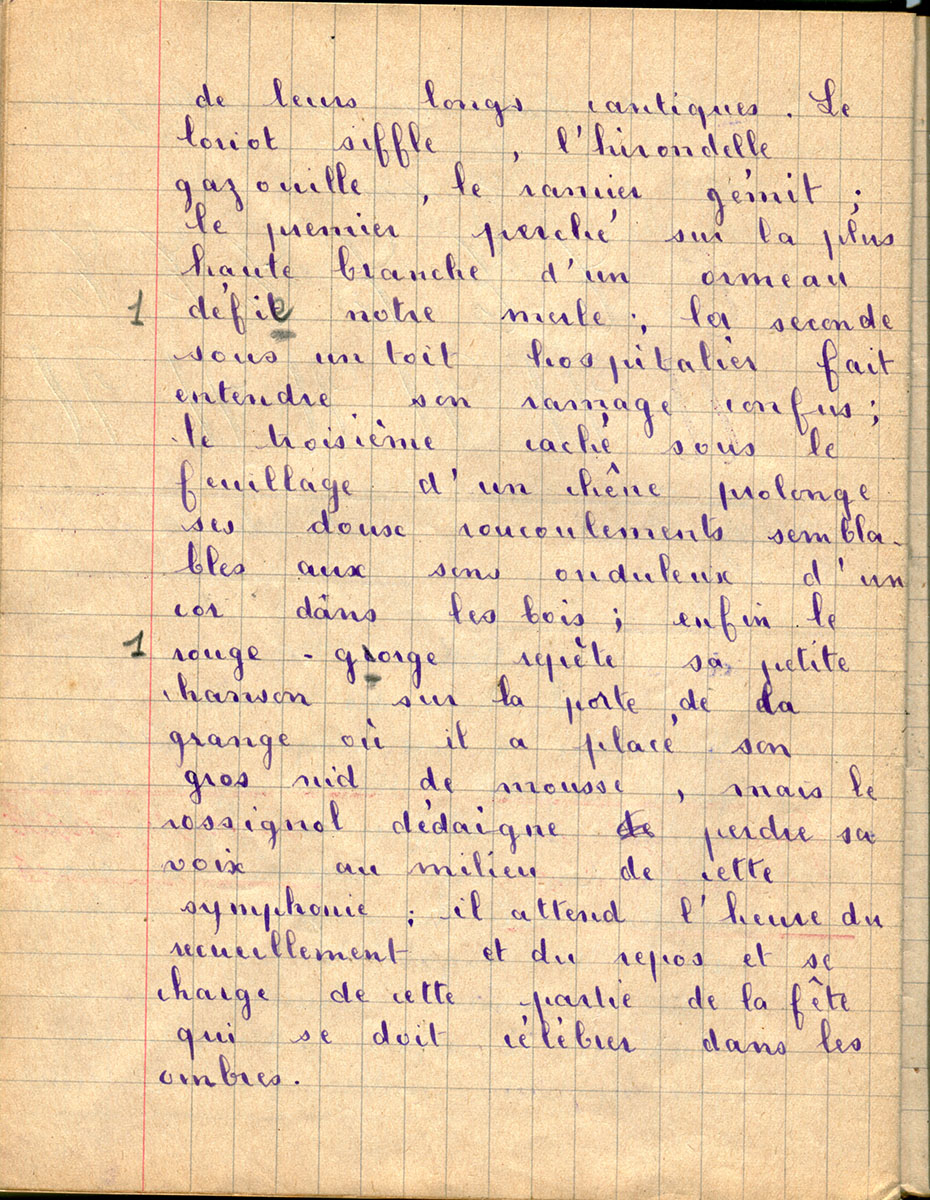 de leurs longs cantiques. Le
loriot siffle, l'hirondelle
gazouille, le ramier gémit ;
le premier perché sur la plus
haute branche d'un ormeau
1 défie notre merle ; la seconde
sous un toit hospitalier fait
entendre son ramage confus ;
le troisième caché sous le
feuillage d'un chêne prolonge
ses doux roucoulements sembla-
bles aux sons onduleux d'un
cor dans les bois ; enfin le
1 rouge-gorge repête sa petite
chanson sur la porte de la
grange où il a placé son
gros nid de mousse, mais le
rossignol dédaigne de perdre sa
voix au milieu de cette
symphonie ; il attend l'heure du
recueillement et du repos et se
charge de cette partie de la fête
qui se doit célébrer dans les
ombres.